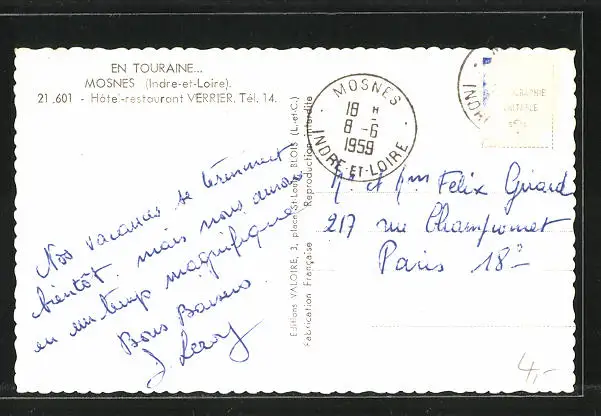 EN TOURAINE...
MOSNES (Indre-et-Loire).
21.601 - Hôtel-restaurant VERRIER. Tél. 14.
Nos vacances se terminent
bientôt. mais nous aurons
eu un temps magnifique
Bons Baisers
J. Leroy
Editions VALOIRE, 3, place St-Louis, BLOIS (L.-et-C.)
Fabrication Française Reproduction interdite
MOSNES
18 H
8 -6
1959
INDRE-ET-LOIRE
INDRE
M. et Mme Felix Girard
217 rue Championnet
Paris 18e
4,-